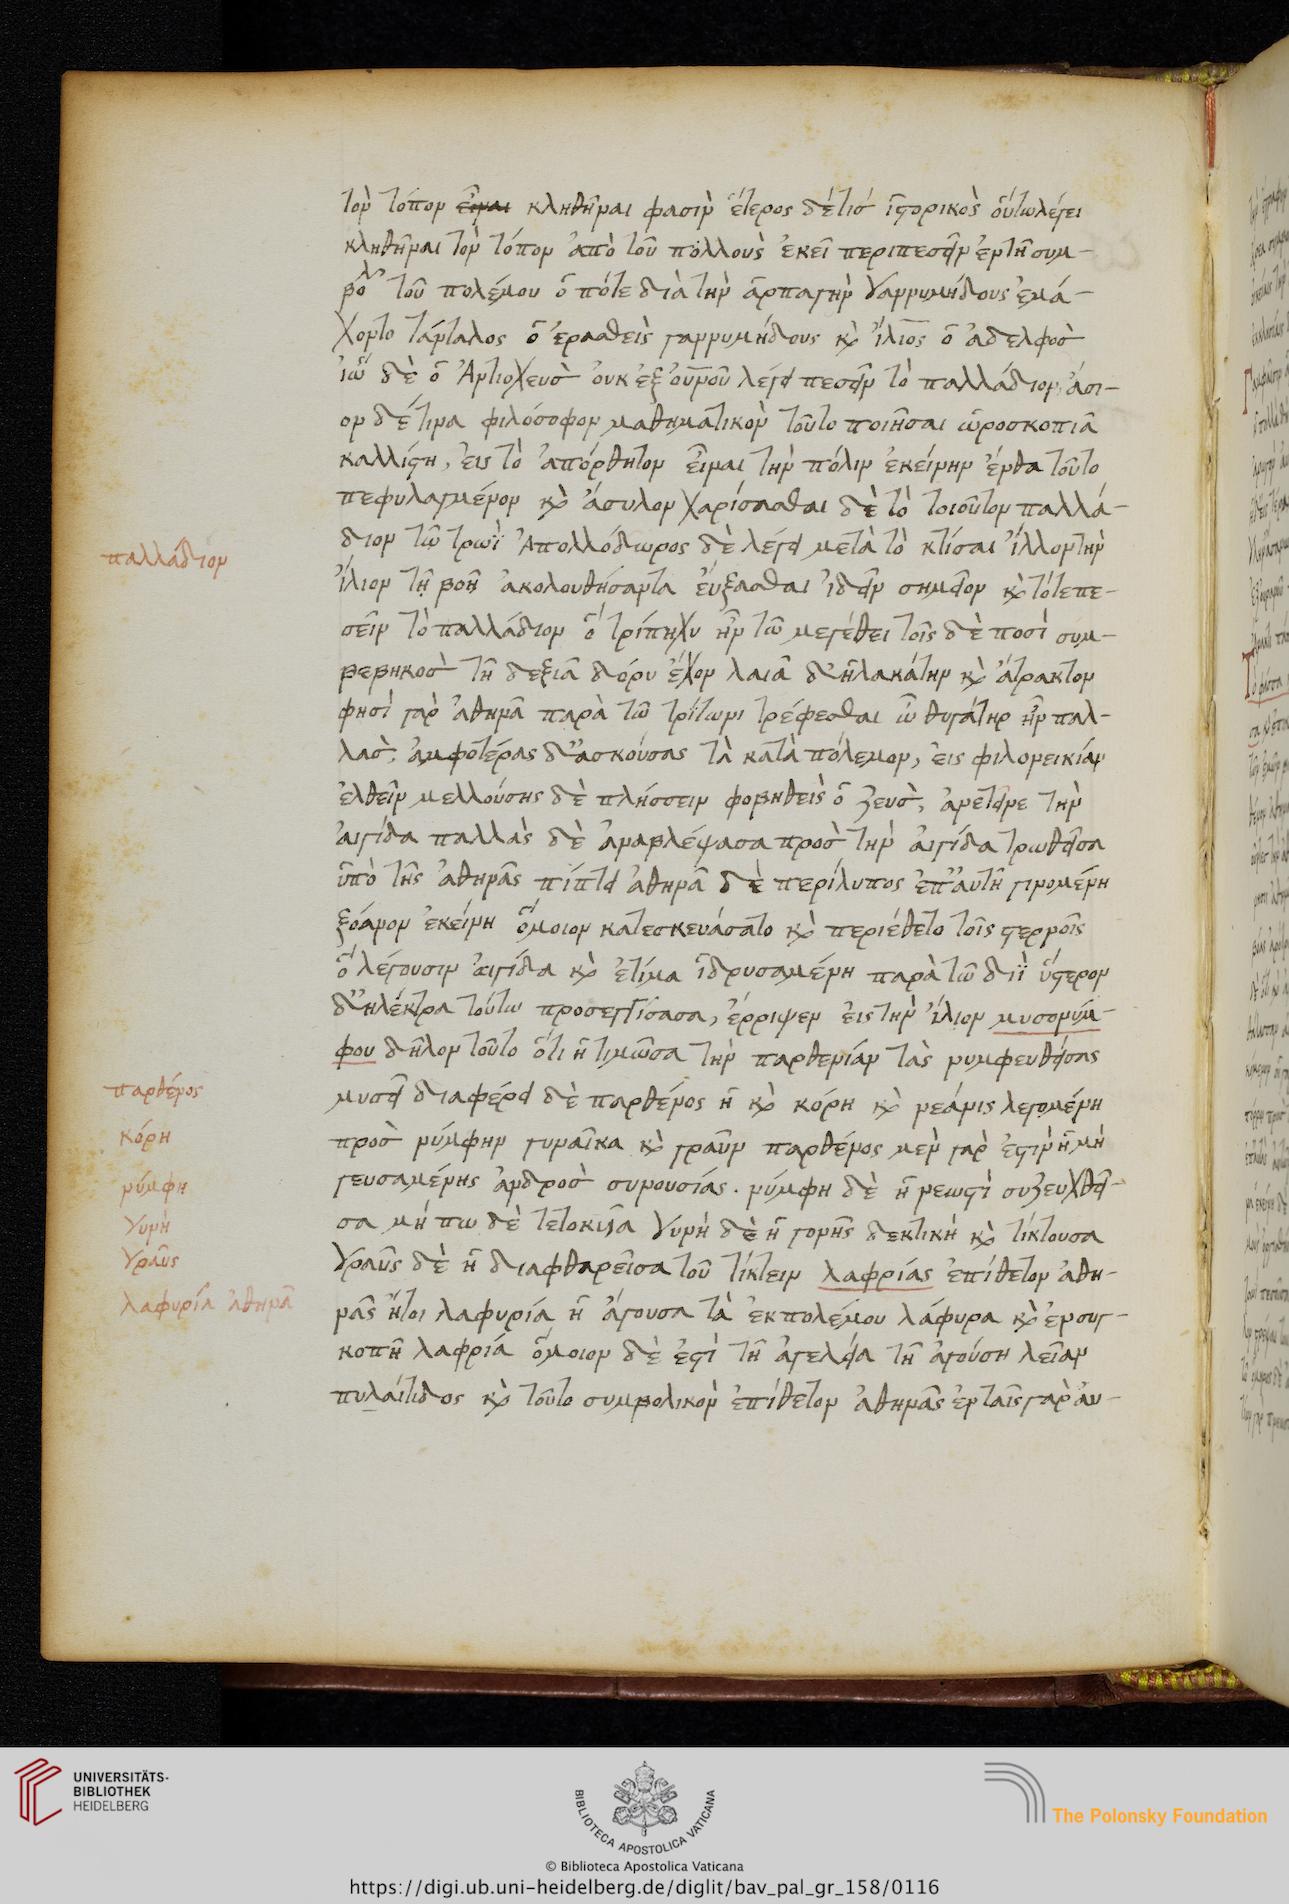 τὸν τόπον εἶναι κληθῆναι φασὶν ἕτερος δέ τισ ἱστορικὸς οὕτω λέγει
κληθῆναι τὸν τόπον ἀπὸ τοῦ πολλοὺς ἐκεῖ περιπεσεῖν ἐν τῆ συμ-
βολ τοῦ πολέμου ὁπότε διὰ τὴν ἁρπαγὴν γαννυμήδους ἐμά-
χοντο τάνταλος ὁ ἐρασθεὶς γαννυμήδους καὶ ἴλιος ὁ ἀδελφὸσ
ἰω δὲ ὁ Ἀντιοχεὺσ οὐκ ἐξ οὐνοῦ λέγει πεσεῖν τὸ παλλάδιον, ἄσι-
ον δέ τινα φιλόσοφον μαθηματικὸν τοῦτο ποιῆσαι ὡροσκοπία
καλλίστη, εἰς τὸ ἀπόρθητον εἶναι τὴν πόλιν ἐκείνην ἔνθα τοῦτο
πεφυλαγμένον καὶ ἄσυλον χαρίσασθαι δὲ τὸ τοιοῦτον παλλά-
διον τῷ τρωῒ Ἀπολλόδωρος δὲ λέγει μετὰ τὸ κτίσαι ἴλλον τὴν
παλλάδιον
ἴλιον τῇ βοῆ ἀκολουθήσαντα εὔξασθαι ἰδεῖν σημεῖον καὶ τότε πε-
σεῖν τὸ παλλάδιον ὃ τρίπηχυ ἦν τῶ μεγέθει τοῖς δὲ ποσὶ συμ-
βεβηκὸσ τῆ δεξιᾶ δόρυ ἔχον λαιᾶ δ' ἠλακάτην καὶ ἄτρακτον
φησὶ γὰρ ἀθηνᾶ παρὰ τῶ τρίτωνι τρέφεσθαι ὧ θυγάτηρ ἦν παλ-
λασ. ἀμφοτέρας δ' ἀσκούσας τὰ κατὰ πόλεμον, εἰς φιλονεικίαν
ἐλθεῖν μελλούσης δὲ πλήσσειν φοβηθεὶς ὁ ζεὺσ, ἀνέτεινε τὴν
αἰγίδα παλλὰς δὲ ἀναβλέψασα πρὸσ τὴν αἰγίδα τρωθεῖσα
ὑπὸ τῆς ἀθηνᾶς πίπτει ἀθηνᾶ δὲ περίλυπος ἐπ' αὐτῆ γινομένη
ξόανον ἐκείνη ὅμοιον κατεσκευάσατο καὶ περιέθετο τοῖς στερνοῖς
ὃ λέγουσιν αἰγίδα καὶ ἐτίμα ἱδρυσαμένη παρὰ τῶ διῒ ὕστερον
δ' ἠλέκτρα τούτω προσεγγίσασα, ἔρριψεν εἰς τὴν ἴλιον μυσονύμ-
φου δῆλον τοῦτο ὅτι ἡ τιμῶσα τὴν παρθενίαν τὰς νυμφευθείσας
μυσεῖ διαφέρει δὲ παρθένος ἢ καὶ κόρη καὶ νεάνις λεγομένη
παρθένος
πρὸσ νύμφην γυναῖκα καὶ γραῦν παρθένος μὲν γὰρ ἐστὶν ἡ μὴ
κόρη
γευσαμένης ἀνδρὸσ συνουσίας. νύμφη δὲ ἡ νεωστὶ συζευχθεῖ-
νύμφη
σα μή πω δὲ τετοκυῖα γυνὴ δὲ ἡ γονῆς δεκτικὴ καὶ τίκτουσα
γυνὴ
γραῦς δὲ ἡ διαφθαρεῖσα τοῦ τίκτειν λαφρίας ἐπίθετον ἀθη-
γραῦς
νᾶς ἤτοι λαφυρία ἡ ἄγουσα τὰ ἐκ πολέμου λάφυρα καὶ ἐν συγ-
λαφυρία ἀθηνᾶ
κοπῆ λαφρία ὅμοιον δὲ ἐστὶ τῆ ἀγελεία τῆ ἀγούση λεῖαν
πυλάιτιδος καὶ τοῦτο συμβολικὸν ἐπίθετον ἀθηνᾶς ἐν ταῖς γὰρ ἀυ-
UNIVERSITÄTS-
BIBLIOTHEK
HEIDELBERG
BIBLIOTECA APOSTOLICA VATICANA
The Polonsky Foundation
© Biblioteca Apostolica Vaticana
https://digi.ub.uni-heidelberg.de/diglit/bav_pal_gr_158/0116